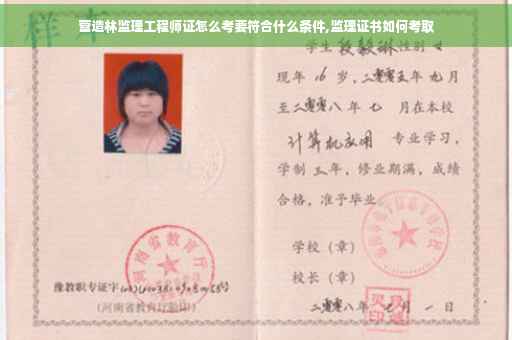 营造林监理工程师证怎么考要符合什么条件,监理证书如何考取
样本
学生 段毅琳 性别 女
现年 16 岁,二零零五年 九月
至二零零八年 七 月在本校
计算机应用 专业学习,
学制 三 年,修业期满,成绩
合格,准予毕业
河南省教育厅
学校(章)
校长(章)
豫教职专证字
(河南省教育厅验印)
二零零八年 七 月 一 日